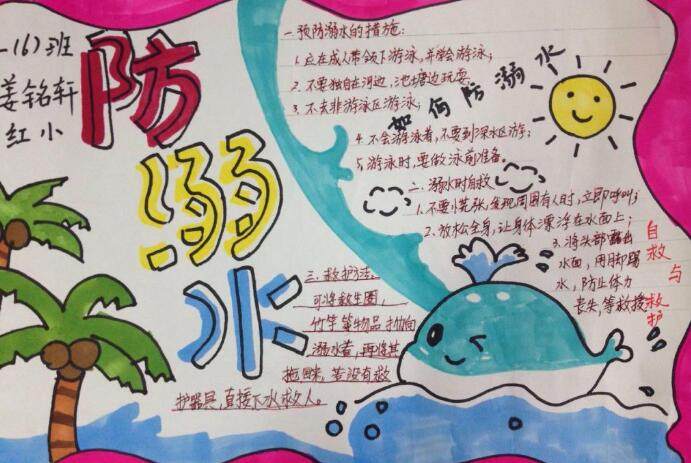 一(6)班
姜铭轩
红小
防
溺
水
一、预防溺水的措施:
1.应在成人带领下游泳,并学会游泳;
2.不要独自在河边,池塘边玩耍
3.不去非游泳区游泳;
如何防溺水
4.不会游泳者,不要到深水区游;
5.游泳时,要做泳前准备。
二、溺水时自救
1.不要慌张,发现周围有人时,立即呼叫;
2.放松全身,让身体漂浮在水面上;
3.将头部露出
水面,用脚踢
水,防止体力
丧失,等救援
自救与救护
三、救护法:
可将救生圈,
竹竿等物品抛向
溺水者,再将其
拖回来,若没有救
护器具,直接下水救人。